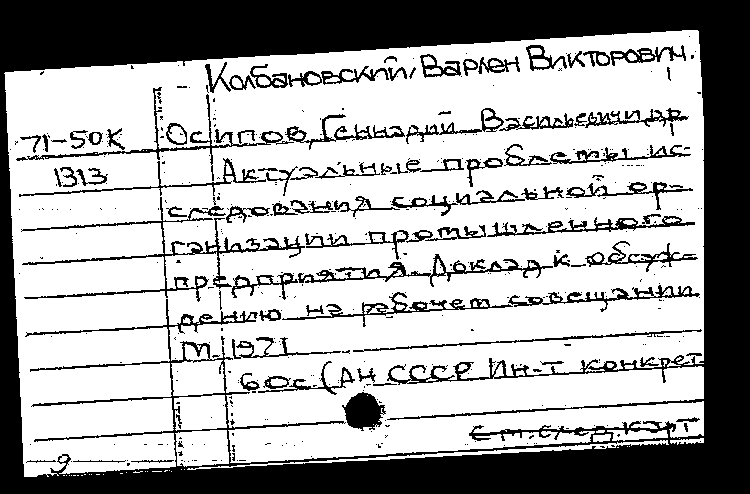 Колбановский, Варлен Викторович.
71-50К Осипов, Геннадий Васильевич и др
1313 Актуальные проблемы ис-
следования социальной ор-
ганизации промышленного
предприятия. Доклад к обсуж-
дению на рабочем совещании
М. 1971
60с (АН СССР Ин-т конкрет.
См. след. карт
9